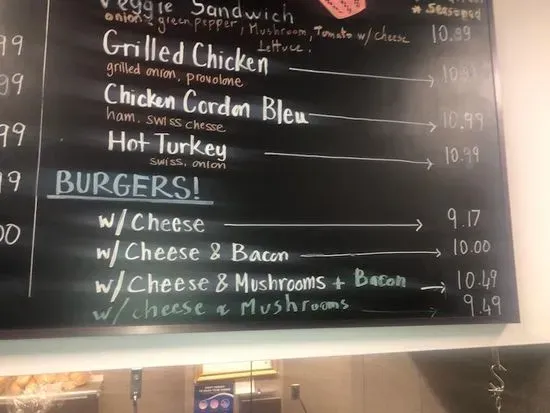 Veggie Sandwich
* Seasoned
onion, green pepper, Mushroom, Tomato w/ cheese
10.99
Lettuce,
99
Grilled Chicken
grilled onion, provolone
99
Chicken Cordon Bleu 10.99
ham, swiss chesse
99
Hot Turkey 10.99
swiss, onion
BURGERS!
w/ Cheese 9.17
w/ Cheese & Bacon 10.00
w/ Cheese & Mushrooms + Bacon 10.49
w/ cheese & Mushrooms 9.49